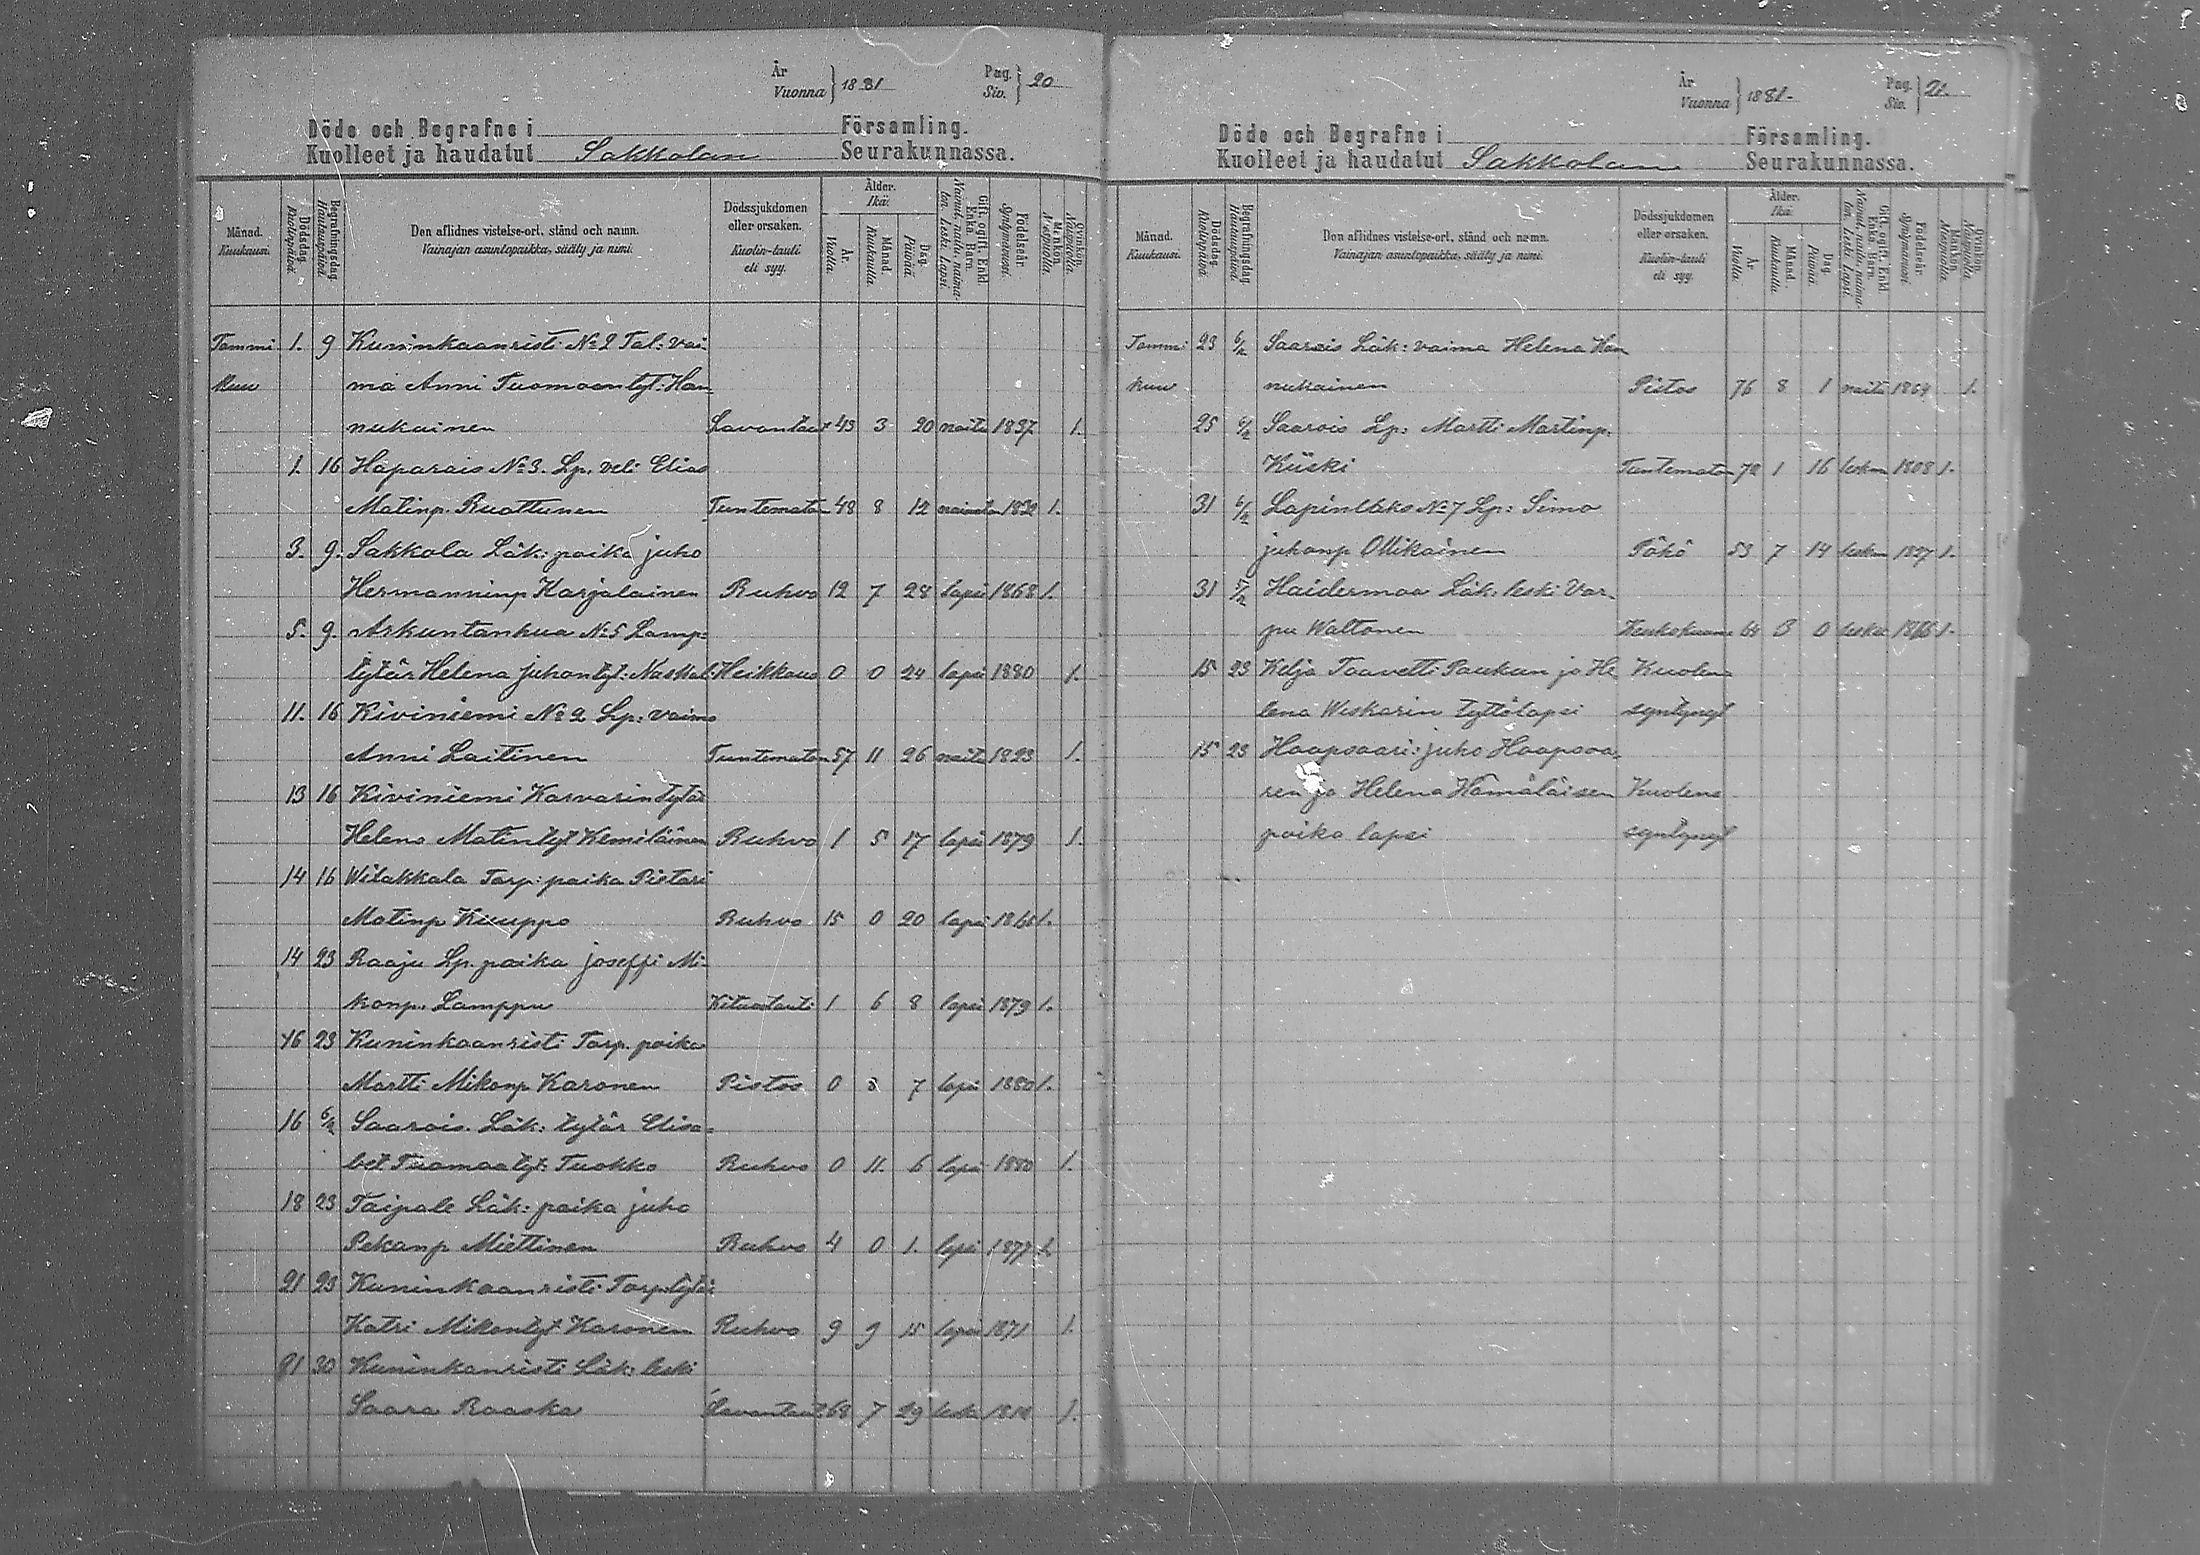 År
Vuonna } 1881
Pag.
Siv. } 20
Döde och Begrafne i Församling.
Kuolleet ja haudatut Sakkolan Seurakunnassa.
Månad. Kuukausi.
Dödsdag. Kuolinpäivä.
Begrafningsdag. Hautauspäivä.
Den aflidnes vistelse-ort, stånd och namn.
Vainajan asuntopaikka, sääty ja nimi.
Dödssjukdomen eller orsaken.
Kuolin-tauti eli syy.
Ålder. Ikä.
År. Vuotta.
Månad. Kuukautta
Dag. Päivää.
Gift, ogift, Enkl. Enka, Barn.
Nainut, naitu, naimaton, Leski, Lapsi.
Födelseår. Syntymävuosi.
Mankön. Miespuolia.
Qvinkön. Vaispuolia.
Tammi 1. 9 Kuninkaanristi No 2 Tal: vai-
kuu mo Anni Tuomaantyt: Han-
nukainen Lavantaut 43 3 20 naitu 1837 1.
1. 16 Haparais No 3. Lp. veli Elias
Matinp. Ruottunen Tuntematon 48 8 12 naimaton 1832 1.
3. 9. Sakkola Läk: poika juho
Hermanninp Karjalainen Ruhvo 12 7 28 lapsi 1868 1.
5. 9. Arkuntanhua No 5 Lamp:
tytär Helena juhontyt: Naskal: Heikkous 0 0 24 lapsi 1880 1.
11. 16 Kiviniemi No 2 Lp: vaimo
Anni Laitinen Tuntematon 57 11 26 naitu 1823 1.
13 16 Kiviniemi Karvarin tytär
Helena Matintyt Kemiläinen Ruhvo 1 5 17 lapsi 1879 1.
14 16 Wilakkala Torp: poika Pietari
Matinp Kuuppo Ruhvo 15 0 20 lapsi 1865 1.
14 23 Raaju Lp. poika joseffi Mi-
konp. Lamppu Kituvatauti 1 6 8 lapsi 1879 1.
16 23 Kuninkaanristi Torp. poika
Martti Mikonp Karonen Pistos 0 3 7 lapsi 1880 1.
16 6/2 Saarois. Läk: tytär Elisa-
bet Tuomaatyt Tuokko Ruhvo 0 11. 6 lapsi 1880 1.
18 23 Taipale Läk: poika juho
Pekanp Miettinen Ruhvo 4 0 1. lapsi 1877 1.
21 23 Kuninkaanristi Torp. tytär
Katri Mikontyt Karonen Ruhvo 9 9 15 lapsi 1871 1.
21 30 Kuninkanristi Läk: leski
Saara Raaska Lavantaut 68 7 29 leski 1812 1.
År
Vuonna } 1881.
Pag.
Siv. } 21.
Döde och Begrafne i Församling.
Kuolleet ja haudatut Sakkolan Seurakunnassa.
Månad. Kuukausi.
Dödsdag. Kuolinpäivä.
Begrafningsdag. Hautauspäivä.
Den aflidnes vistelse-ort, stånd och namn.
Vainajan asuntopaikka, sääty ja nimi.
Dödssjukdomen eller orsaken.
Kuolin-tauti eli syy.
Ålder. Ikä.
År. Vuotta.
Månad. Kuukautta.
Dag. Päivää.
Gift, ogift, Enkl. Enka, Barn.
Nainut, naitu, naimaton, Leski, Lapsi.
Födelseår. Syntymävuosi.
Mankön. Miespuolia.
Qvinkön. Vaispuolia.
Tammi 23 6/2 Saarois Läk: vaimo Helena Han
kuu nukainen Pistos 76 8 1 naitu 1804 1.
25 6/2 Saarois Lp: Martti Martinp.
Kiiski Tuntematon 72 1 16 leskm 1808 1.
31 6/2 Lapinlaks No 7 Lp: Simo
juhonp Ollikainen Pöhö 53 7 14 leskm 1827 1.
31 Haidermaa Läk: leski Var-
pu Waltonen 64 3 0 leski 1.
15 23 Kelja Taavetti Paukun ja He Kuolena
lena Weskarin tyttölapsi syntynyt
15 23 Haapsaari: juho Haapsaa-
ren ja Helena Hämäläisen Kuolena
poika lapsi syntynyt